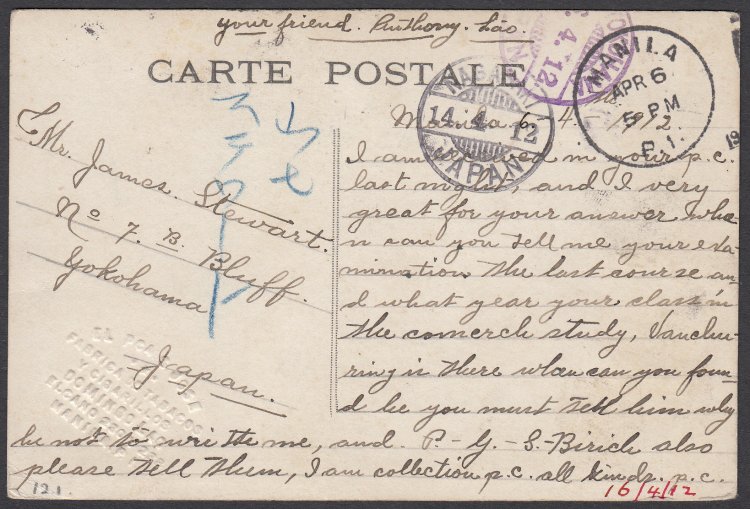 your friend. Anthony. Lao.
CARTE POSTALE
MANILA
APR 6
5 PM
P.I.
4.12
NAGASAKI
14.4.12
JAPAN
Mr. James. Stewart.
No 7. B. Bluff.
Yokohama
Japan.
Manila 6 - 4. 1912.
I am recived in your p.c.
last night, and I very
great for your answer whe
n can you tell me your exa-
mination the last course an-
d what year your class in
the comerch study, Vanchu-
ring is there when can you foun-
d he you must tell him why
he not to write the me, and. P.-Y.-S.-Birich also
please tell them, I am collection p.c. all kinds. p.c.
FABRICA DE TABACOS
Y CIGARR
DOMINGO
ELCANO
MANILA
121
16/4/12